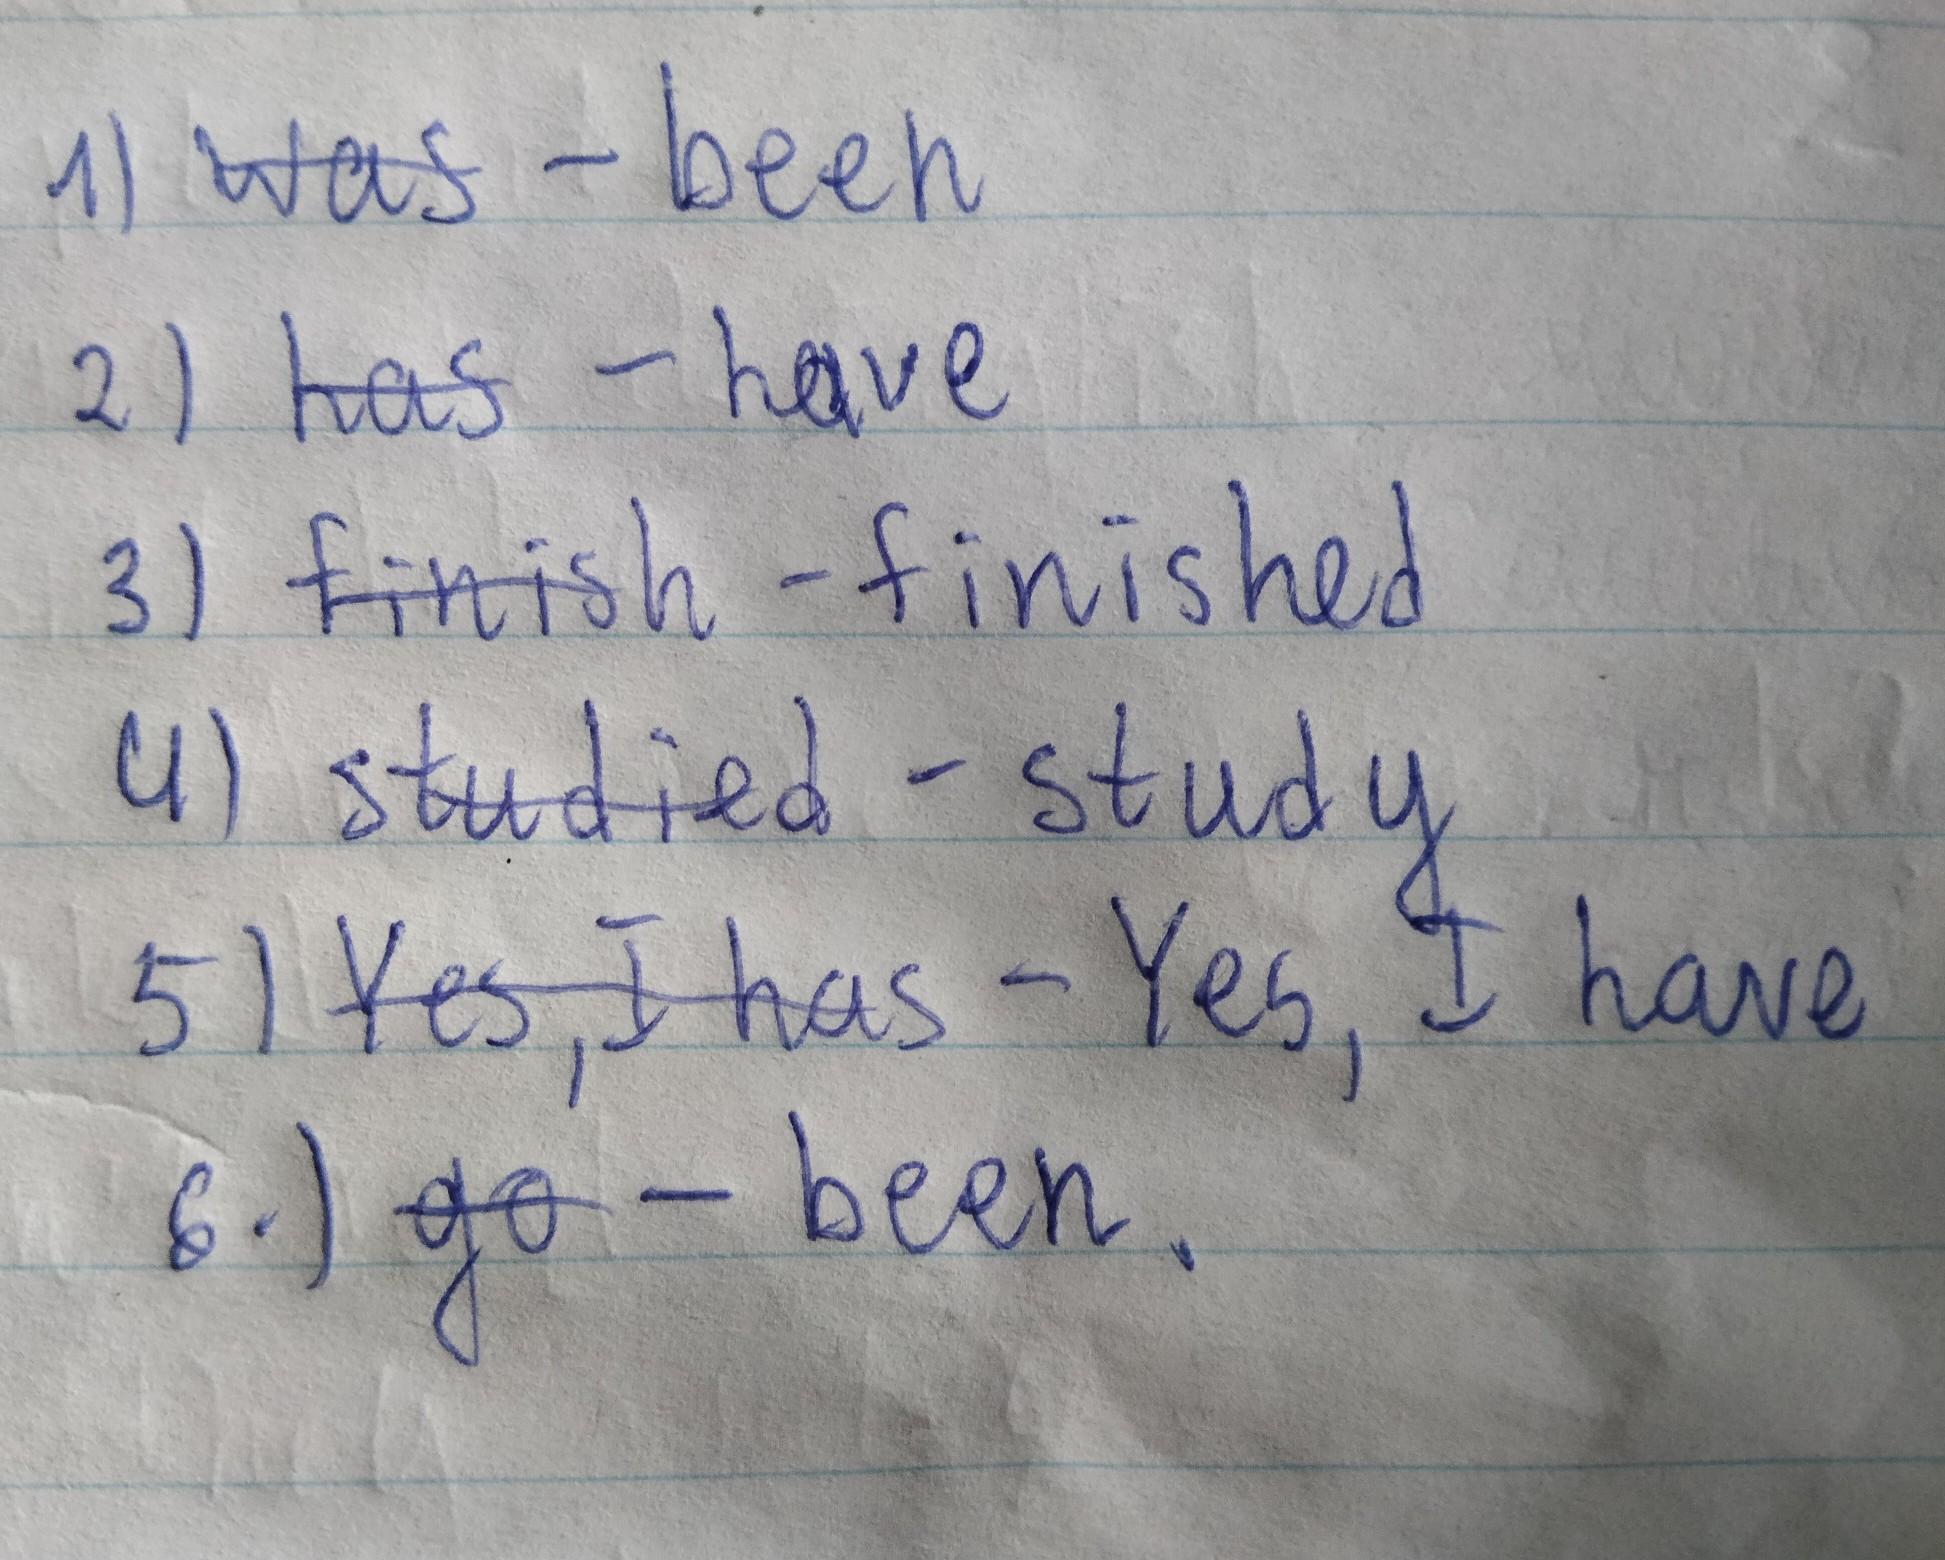 1) was - been
2) has - have
3) finish - finished
4) studied - study
5) Yes, I has - Yes, I have
6.) go - been.